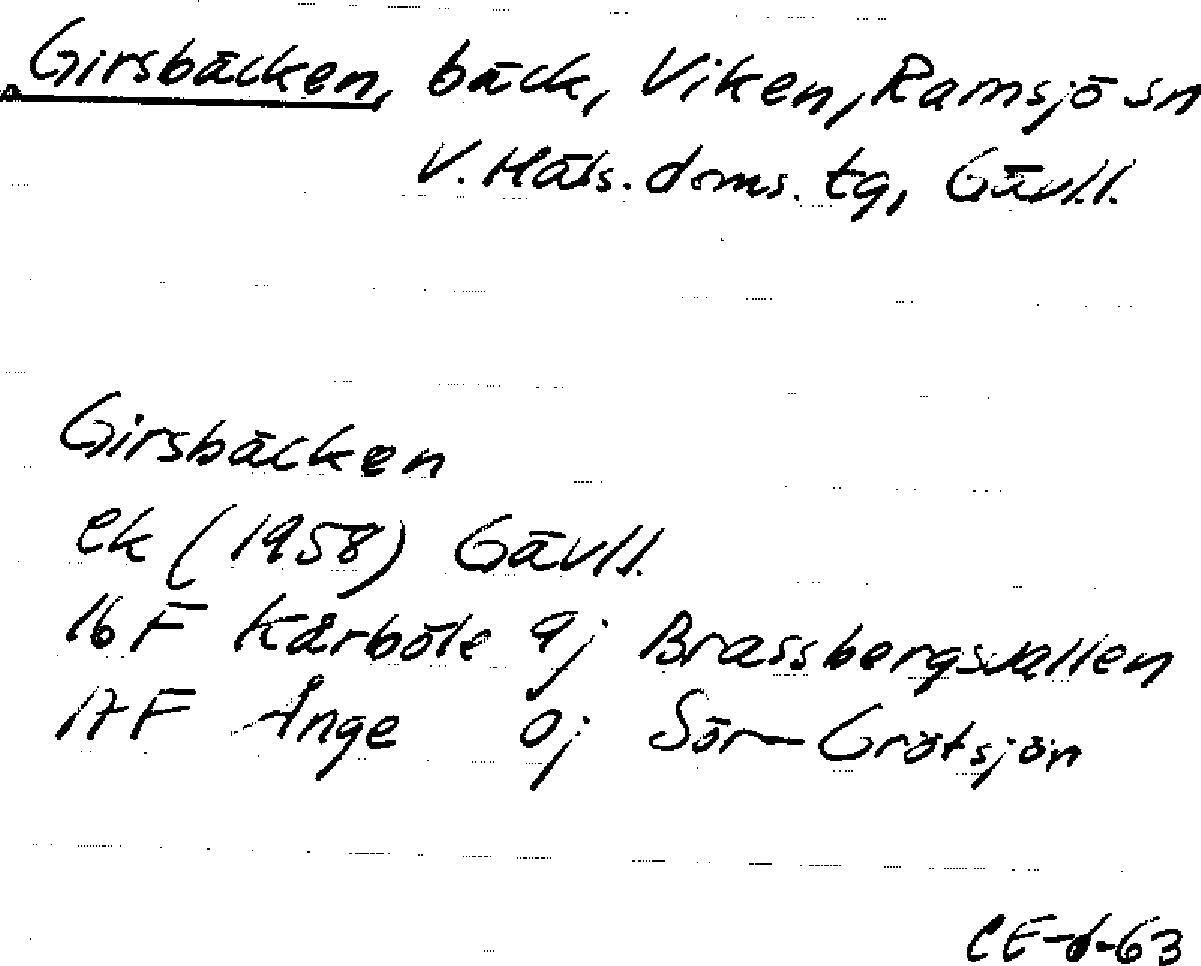 Girsbäcken, bäck, Viken, Ramsjö sn
V. Häls. doms. tg, Gävl.l.
Girsbäcken
ek (1958) Gävl.l.
16 F Kårböle 9j Brassbergsvallen
17 F Ånge 0j Sör-Grötsjön
CE-d-63